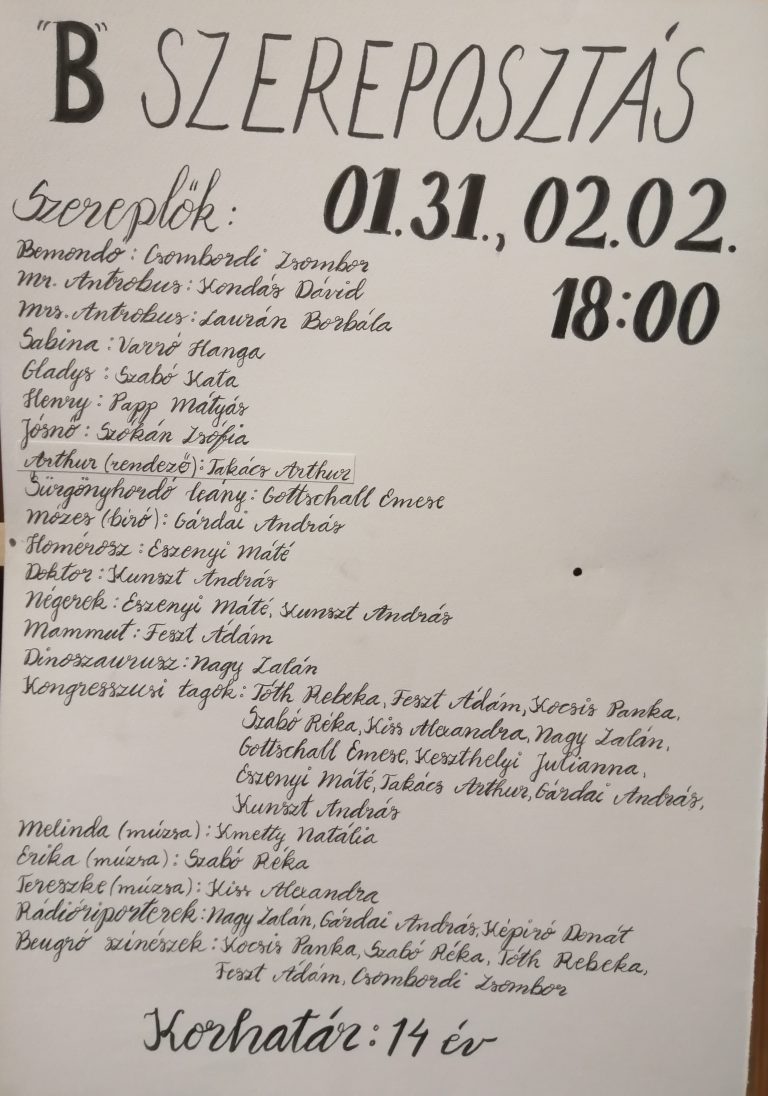 "B" SZEREPOSZTÁS
Szereplők:
01.31., 02.02.
18:00
Bemondó: Csombordi Zsombor
Mr. Antrobus: Kondás Dávid
Mrs. Antrobus: Laurán Borbála
Sabina: Varró Hanga
Gladys: Szabó Kata
Henry: Papp Mátyás
Jósnő: Szókán Zsófia
Arthur (rendező): Takács Arthur
Sürgönyhordó leány: Gottschall Emese
Mózes (bíró): Gárdai András
Homérosz: Eszenyi Máté
Doktor: Kunszt András
Négerek: Eszenyi Máté, Kunszt András
Mammut: Feszt Ádám
Dinoszaurusz: Nagy Zalán
Kongresszusi tagok: Tóth Rebeka, Feszt Ádám, Kocsis Panka,
Szabó Réka, Kiss Alexandra, Nagy Zalán,
Gottschall Emese, Keszthelyi Julianna,
Eszenyi Máté, Takács Arthur, Gárdai András,
Kunszt András
Melinda (múzsa): Kmetty Natália
Erika (múzsa): Szabó Réka
Tereszke (múzsa): Kiss Alexandra
Rádióriporterek: Nagy Zalán, Gárdai András, Képiró Donát
Beugró színészek: Kocsis Panka, Szabó Réka, Tóth Rebeka,
Feszt Ádám, Csombordi Zsombor
Korhatár: 14 év